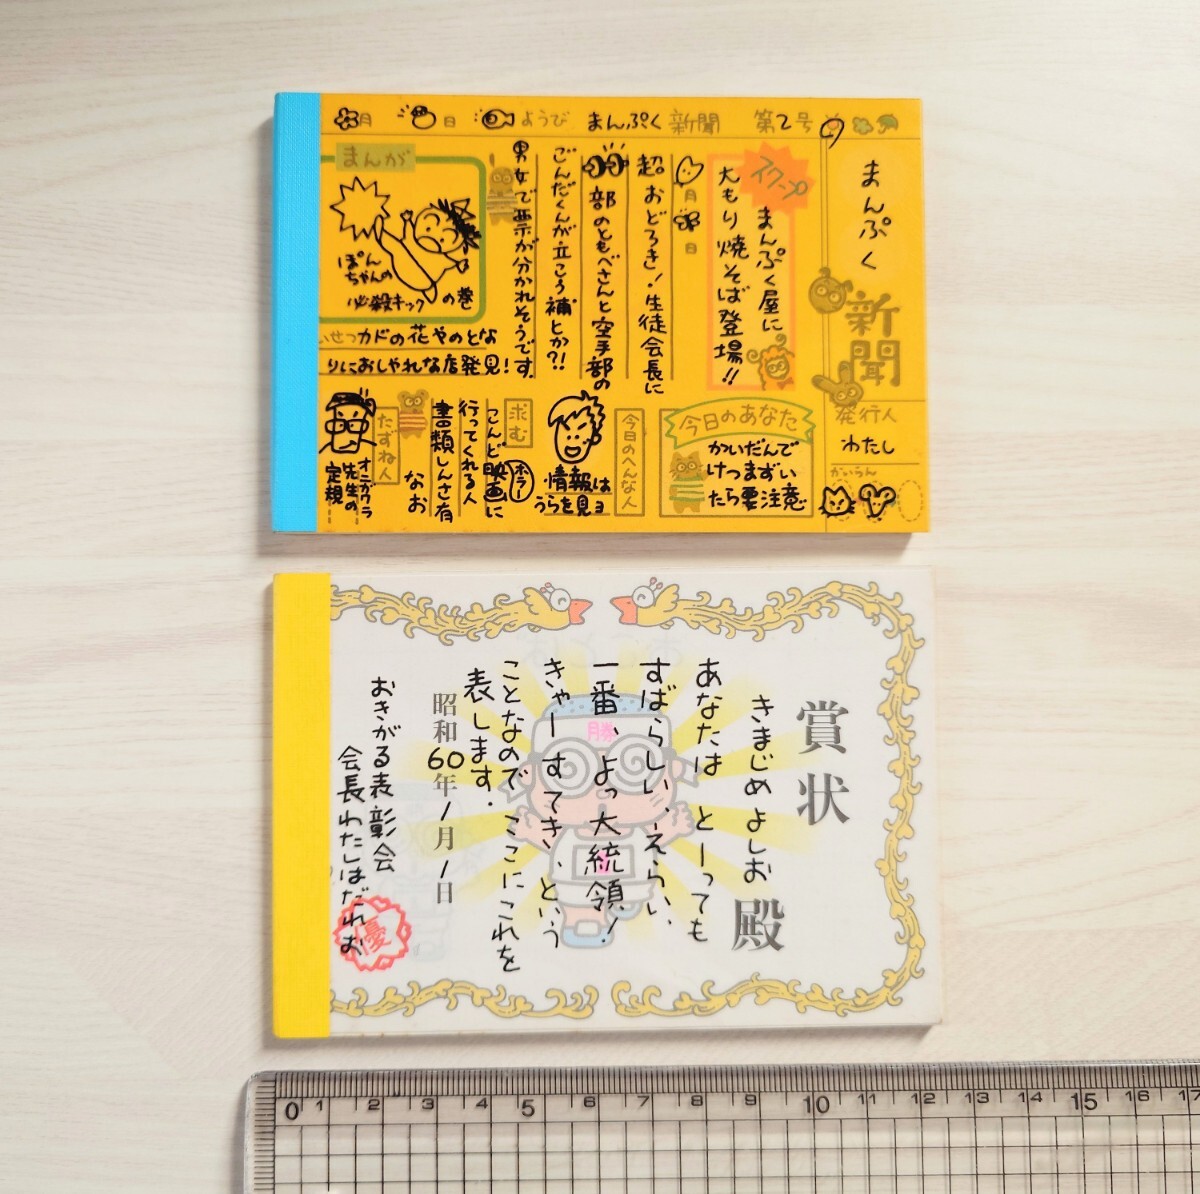 月 日 ようび まんぷく新聞 第2号
まんぷく
新聞
発行人
わたし
かいらん
スクープ
まんぷく屋に
大もり焼そば登場!!
月
日
超おどろき!生徒会長に
部のともべさんと空手部の
ごんだくんが立こう補とか?!
男女で票が分かれそうです。
まんが
ぽん
ちゃんの
必殺キック
の巻
カドの花やのとな
りにおしゃれな店発見!
今日のあなた
かいだんで
けつまずい
たら要注意
今日のへんな人
情報は
うらを見ョ
求む
ホラー
こんど映画に
行ってくれる人
書類しんさ有
なお
たずね人
オニガワラ
先生の
定規
賞状
きまじめよしお 殿
あなたは とーっても
すばらしい、えらい、
一番、よっ大統領!
きゃーすてき、という
ことなので ここにこれを
表します.
昭和60年1月1日
おきがる表彰会
会長わたしはだれお
優
勝
0 1 2 3 4 5 6 7 8 9 10 11 12 13 14 15 16 17